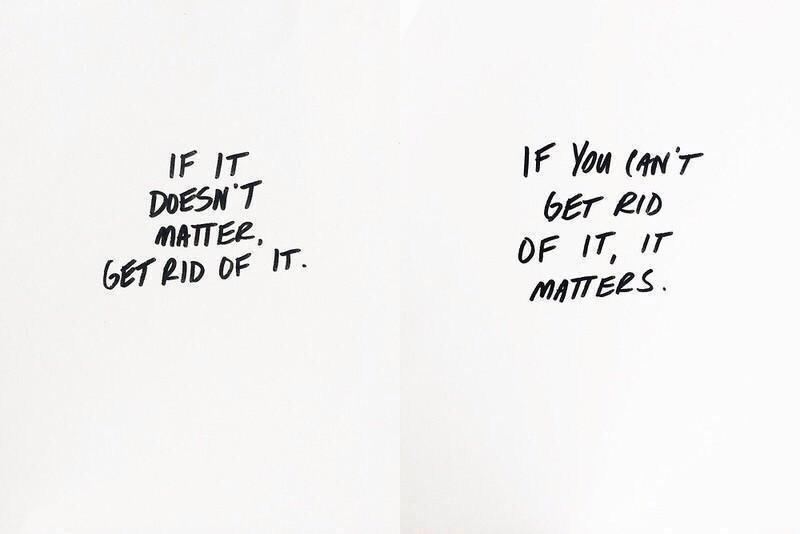 IF IT
DOESN'T
MATTER,
GET RID OF IT.
IF YOU CAN'T
GET RID
OF IT, IT
MATTERS.